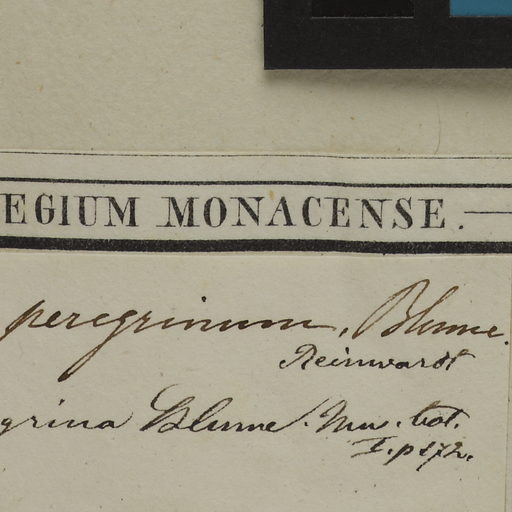 EGIUM MONACENSE.
peregrinum, Blume.
Reinwardt
grina Blume. Mus. bot.
I. p 172.